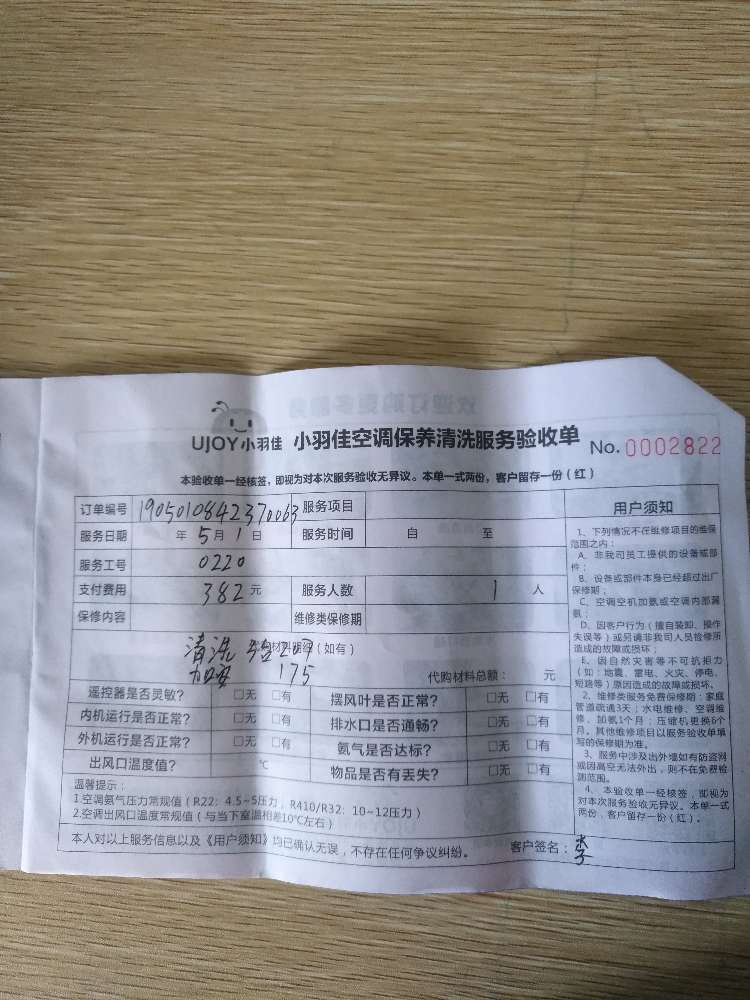 UJOY小羽佳 小羽佳空调保养清洗服务验收单 No. 0002822
本验收单一经核签，即视为对本次服务验收无异议。本单一式两份，客户留存一份（红）
订单编号 1905010842370063 服务项目
服务日期 年 5 月 1 日 服务时间 自 至
服务工号 0220
支付费用 382 元 服务人数 1 人
保修内容 维修类保修期
材料明细（如有）
清洗
加安 175
代购材料总额： 元
遥控器是否灵敏？ □无 □有 摆风叶是否正常？ □无 □有
内机运行是否正常？ □无 □有 排水口是否通畅？ □无 □有
外机运行是否正常？ □无 □有 氨气是否达标？ □无 □有
出风口温度值？ ℃ 物品是否有丢失？ □无 □有
温馨提示：
1.空调氨气压力常规值（R22：4.5~5压力，R410/R32：10~12压力）
2.空调出风口温度常规值（与当下室温相差10℃左右）
本人对以上服务信息以及《用户须知》均已确认无误，不存在任何争议纠纷。 客户签名：李
用户须知
1、下列情况不在维修项目的维保
范围之内：
A、非我司员工提供的设备或部
件；
B、设备或部件本身已经超过出厂
保修期；
C、空调空机加氨或空调内部漏
氨；
D、因客户行为（擅自装卸、操作
失误等）或另请非我司人员检修所
造成的故障或损坏；
E、因自然灾害等不可抗拒力
（如：地震、雷电、火灾、停电、
短路等）原因造成的故障或损坏。
2、维修类服务免费保修期：家庭
管道疏通3天；水电维修、空调维
修、加氨1个月；压缩机更换6个
月。其他维修项目以服务验收单填
写的保修期为准。
3、服务中涉及出外墙如有防盗网
或因高空无法外出，则不在免费检
测范围。
4、本验收单一经核签，即视为
对本次服务验收无异议。本单一式
两份，客户留存一份（红）。